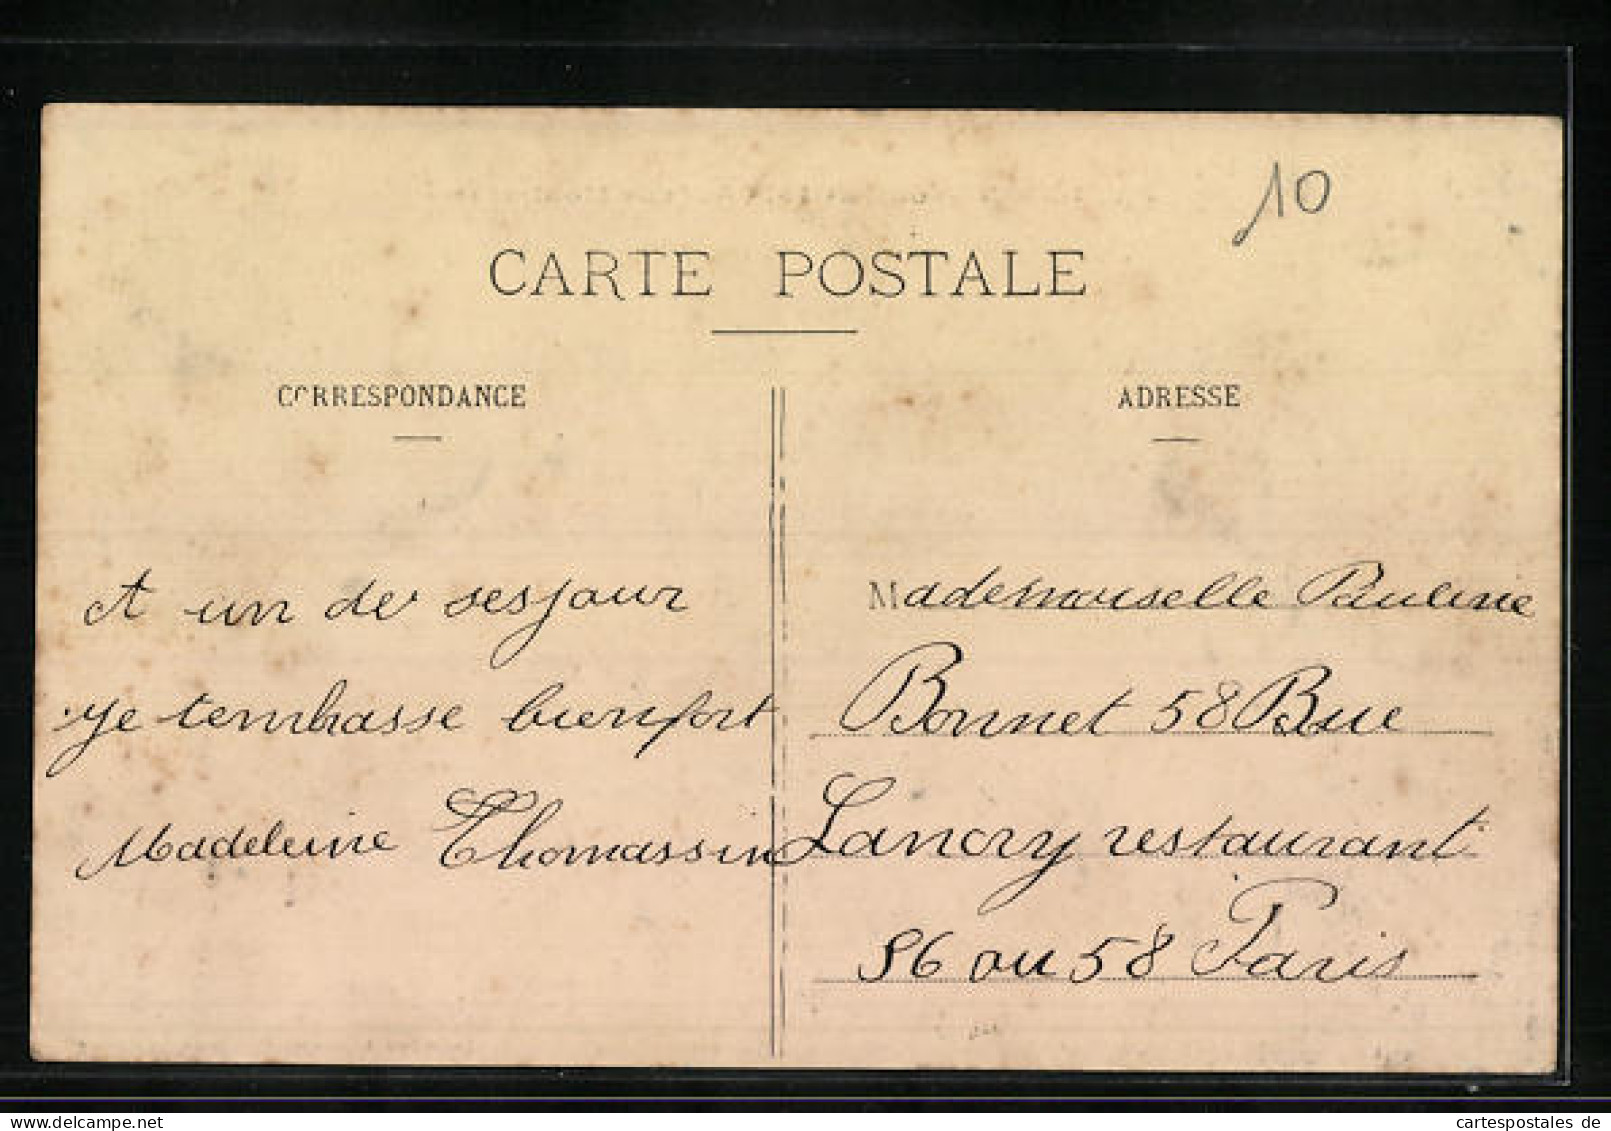 10
CARTE POSTALE
CORRESPONDANCE
A un de ses jour
je tembrasse bien fort
Madeleine Thomassin
ADRESSE
Mademoiselle Pauline
Bonnet 58 Rue
Lancry restaurant
56 ou 58 Paris
cartespostales de